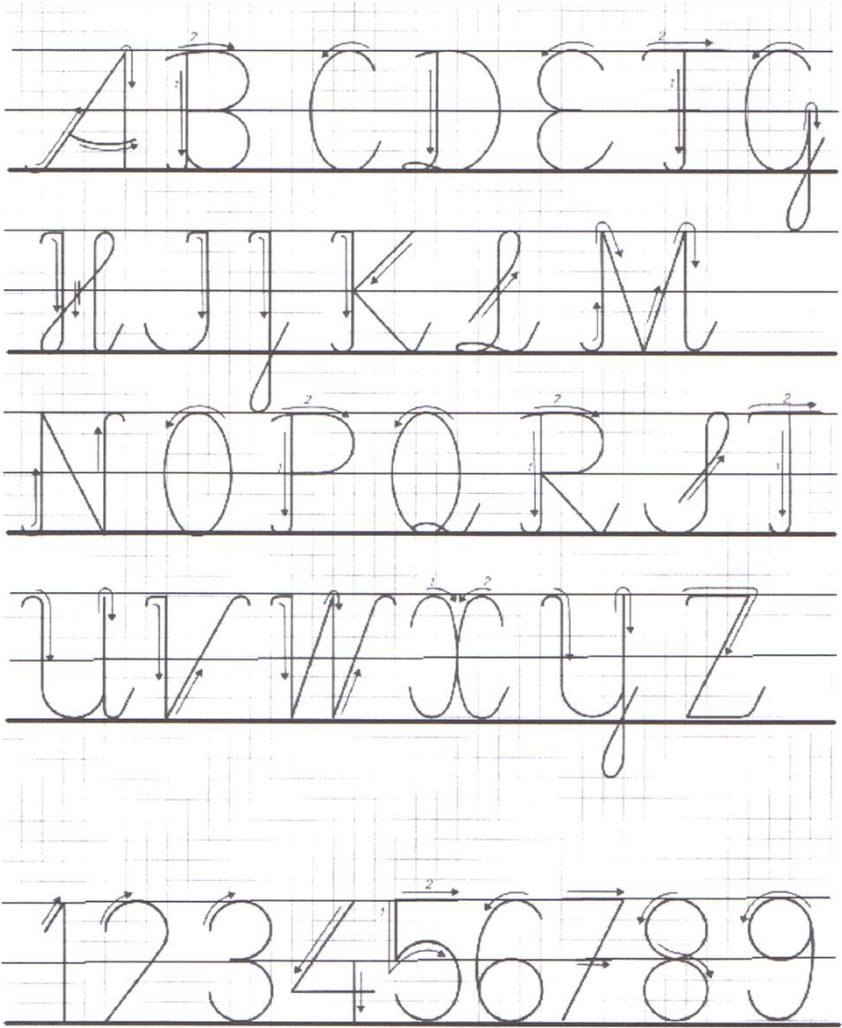 A B C D E F G
H I J K L M
N O P Q R S T
U V W X Y Z
1 2 3 4 5 6 7 8 9